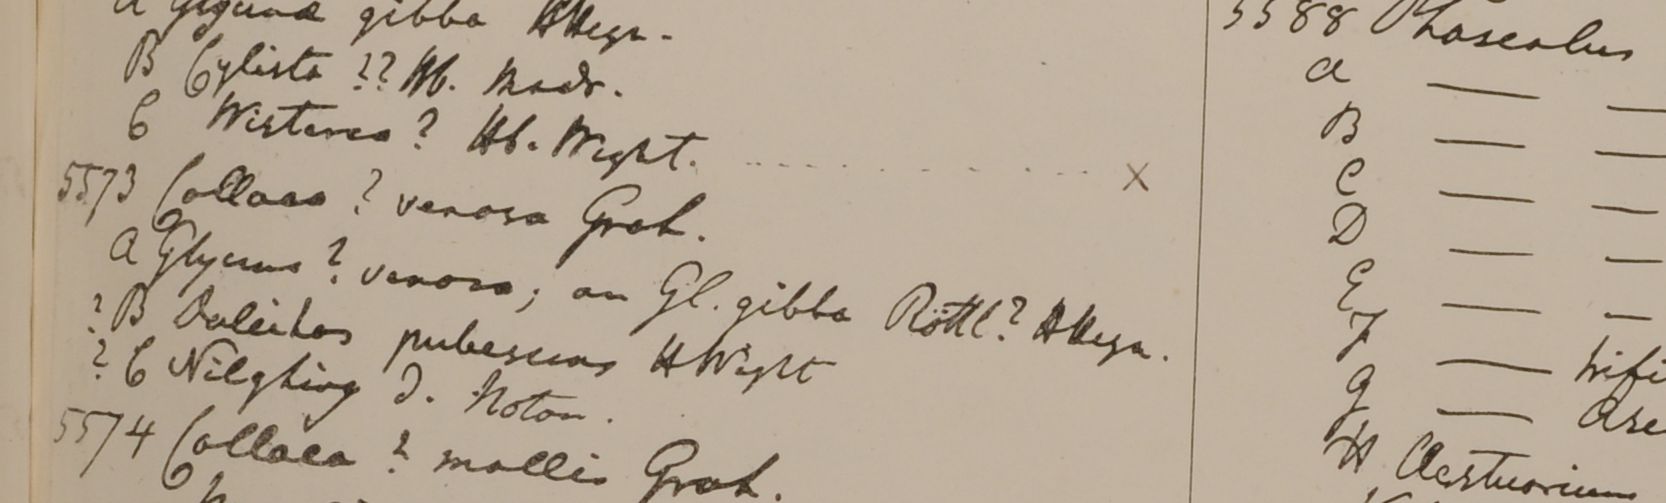 A Glycine gibba HHeyn.
B Cylista ?? Hb. Madr.
C Wisteria ? Hb. Wight. x
5573 Collaea ? venosa Grah.
A Glycine ? venosa; an Gl. gibba Röttl? HHeyn.
? B Dolichos pubescens HWight
? C Nilghiry D. Noton.
5574 Collaea ? mollis Grah.
5588 Phaseolus
a — —
B — —
C — —
D
E — —
F — —
G — trifi
H — are
Aestuarium